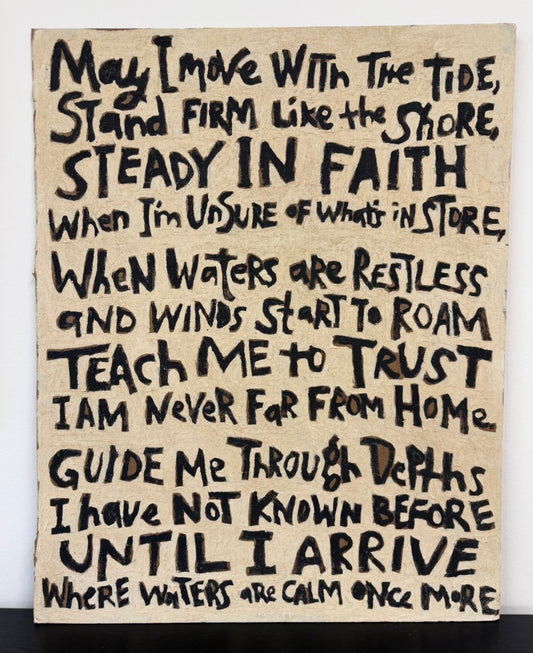 May I move WITH THE TIDE,
Stand FIRM Like the SHORE,
STEADY IN FAITH
When I'm UNSURE OF What's iN STORE,
WHEN Waters are RESTLESS
aND WINDS StaRT To ROAM
TEACH ME to TRUST
I AM NEVER Far FROM HOMe.
GUIDE Me THROUGh DepThs
I have NOT KNOWN BEFORE
UNTIL I ARRIVE
WHERE WaTERS aRe CALM ONCe MORE